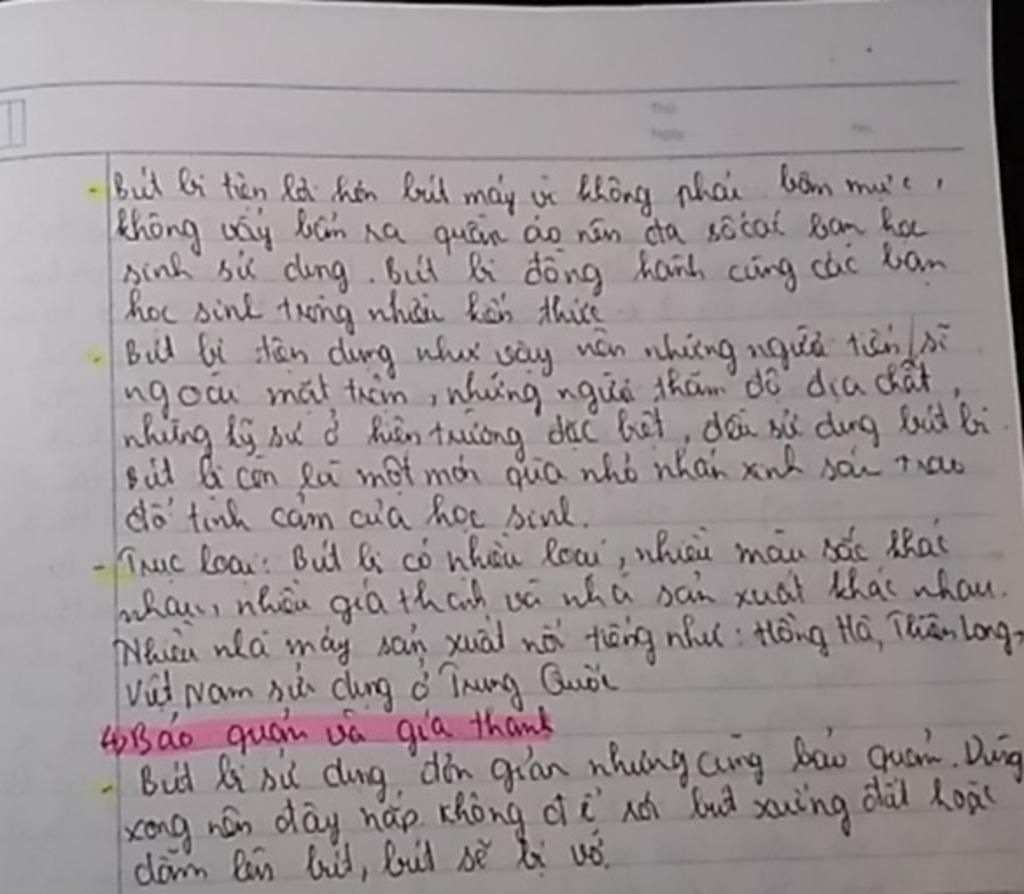 Thứ
Ngày No.
- Bút bi tiện lợi hơn bút máy vì không phải bơm mực,
không vấy bẩn ra quần áo nên đa số các bạn học
sinh sử dụng. Bút bi đồng hành cùng các bạn
học sinh trong nhiều kiến thức
- Bút bi tiện dụng như vậy nên những người tiến sĩ
ngoài mặt trận, những người thăm dò địa chất,
những kỹ sư ở hiện trường đặc biệt, đều sử dụng bút bi.
Bút bi còn là một món quà nhỏ nhắn xinh sắn trao
đổ tình cảm của học sinh.
- Trục loại: Bút bi có nhiều loại, nhiều màu sắc khác
nhau, nhiều giá thành và nhà sản xuất khác nhau.
Nhiều nhà máy sản xuất nổi tiếng như: Hồng Hà, Thiên Long,
Việt Nam sử dụng ở Trung Quốc
4) Bảo quản và giá thành
- Bút bi sử dụng đơn giản nhưng cũng bảo quản. Dùng
xong nên đậy nắp không để rơi bút xuống đất hoặc
dẫm lên bút, bút sẽ bị vỡ.